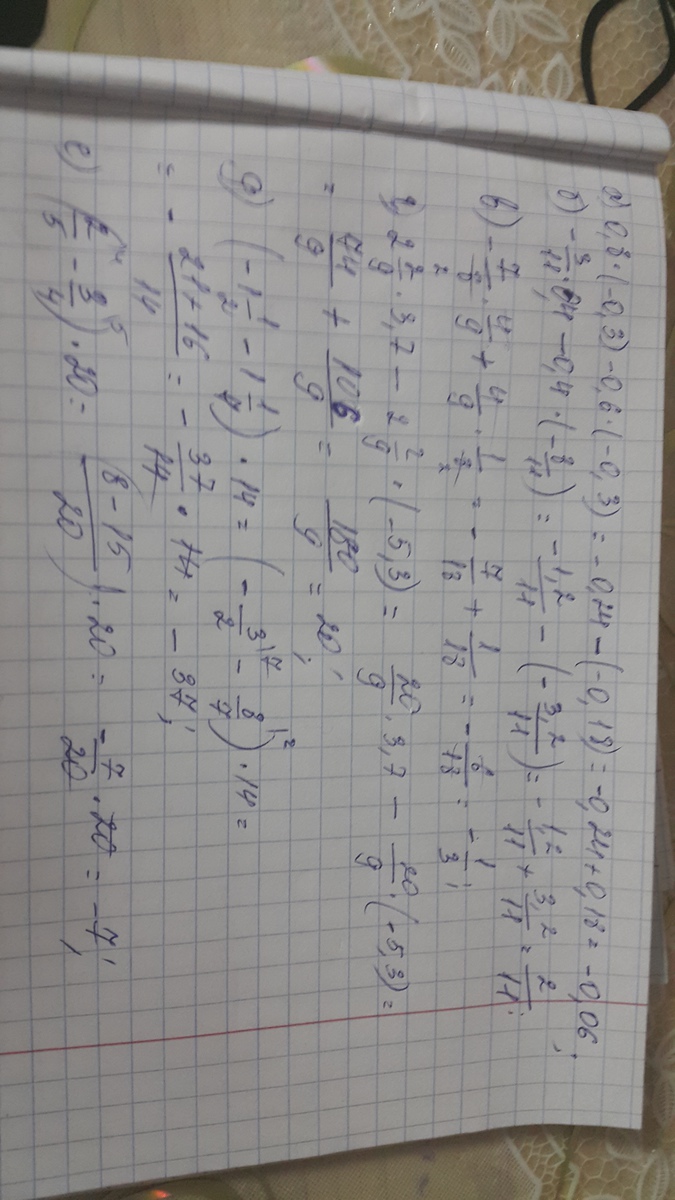 а) 0,8·(-0,3)-0,6·(-0,3)=-0,24-(-0,18)=-0,24+0,18=-0,06;
б) -3/11·0,4-0,4·(-8/11)=-1,2/11-(-3,2/11)=-1,2/11+3,2/11=2/11;
в) -7/8·4/9+4/9·1/8=-7/18+1/18=-6/18=-1/3;
г) 2 2/9·3,7-2 2/9·(-5,3)=20/9·3,7-20/9·(-5,3)=
=74/9+106/9=180/9=20;
д) (-1 1/2-1 1/7)·14=(-3/2-8/7)·14=
=-21+16/14=-37/14·14=-37;
е) (2/5-3/4)·20=(8-15/20)·20=-7/20·20=-7;